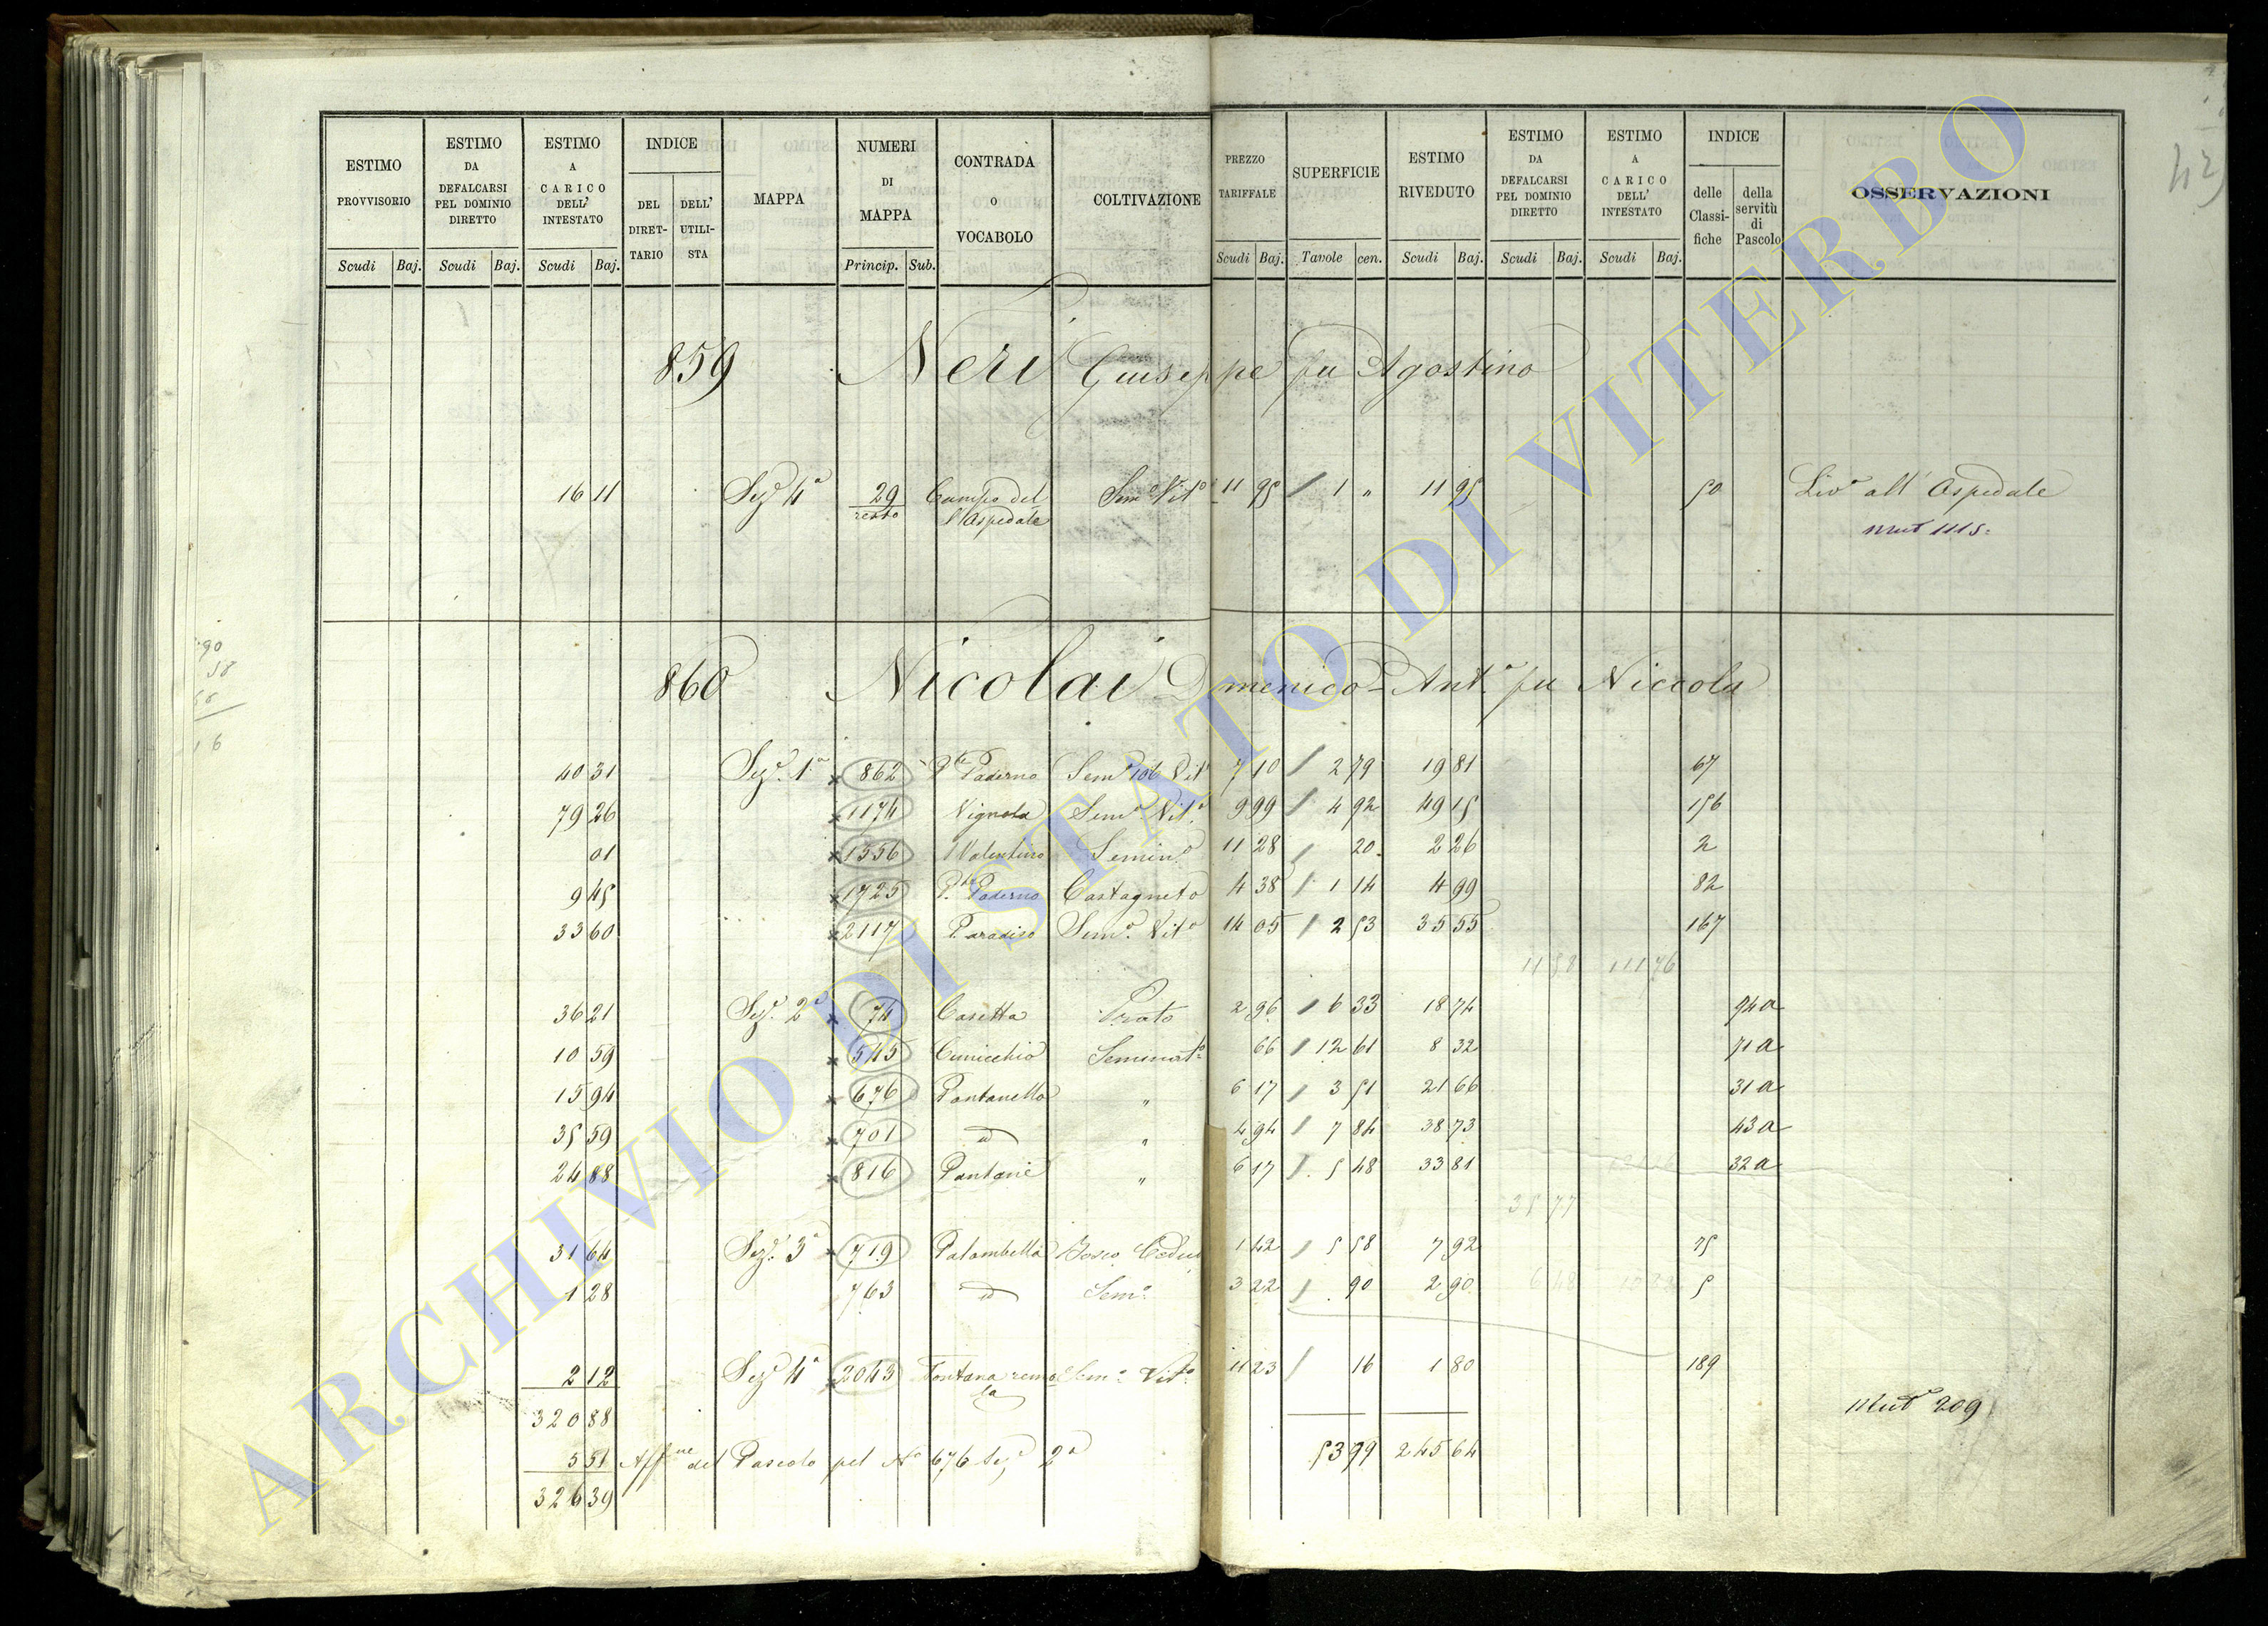 ESTIMO PROVVISORIO | ESTIMO DA DEFALCARSI PEL DOMINIO DIRETTO | ESTIMO A CARICO DELL' INTESTATO | INDICE DEL DIRET-TARIO | DELL' UTILI-STA | MAPPA | NUMERI DI MAPPA | CONTRADA O VOCABOLO | COLTIVAZIONE | PREZZO TARIFFALE | SUPERFICIE | ESTIMO RIVEDUTO | ESTIMO DA DEFALCARSI PEL DOMINIO DIRETTO | ESTIMO A CARICO DELL' INTESTATO | INDICE delle Classi-fiche | della servitù di Pascolo | OSSERVAZIONI
Scudi Baj. | Scudi Baj. | Scudi Baj. | Princip. Sub. | Scudi Baj. | Tavole cen. | Scudi Baj. | Scudi Baj. | Scudi Baj.
42
859 Neri Giuseppe fu Agostino
16 11 Sezᵉ 4ª 29 resto Campo del l'Ospedale Semᵒ Vitᵒ 11 95 / 1 " 11 95 50 Livᵒ all' Ospedale
Mut 1115
860 Nicolai Domenico-Antᵒ fu Niccola
40 31 Sezᵉ 1ª x 862 Pᵗᵉ Paderno Semᵒ Vitᵒ 7 10 / 2 79 19 81 67
79 26 x 1174 Vignola Semᵒ Vitᵒ 9 99 / 4 92 49 15 156
01 x 1556 Valentino Seminᵒ 11 28 / 20 2 26 2
9 45 x 1725 Pᵗᵉ Paderno Castagneto 4 38 / 1 14 4 99 82
33 60 x 2117 Paradiso Semᵒ Vitᵒ 14 05 / 2 53 35 55 167
11 58 111 76
36 21 Sezᵉ 2ª x 74 Casetta Prato 2 96 / 6 33 18 74 94a
10 59 x 545 Cunicchio Seminatᵒ 66 / 12 61 8 32 71a
15 94 x 676 Pantanella " 6 17 / 3 51 21 66 31a
35 59 x 701 id " 4 94 / 7 84 38 73 43a
24 88 x 816 Pantane " 6 17 / 5 48 33 81 32a
35 77
31 64 Sezᵉ 3ª x 719 Palombella Bosco Ceduo 1 42 / 5 58 7 92 75
1 28 763 id Semᵒ 3 22 / 90 2 90 5
2 12 Sezᵉ 4ª x 2043 Fontana remola Semᵒ Vitᵒ 11 23 / 16 1 80 189
320 88 Mut 209
5 51 Affⁿᵉ del Pascolo pel Nᵒ 676 Sezᵉ 2ª 53 99 245 64
326 39
ARCHIVIO DI STATO DI VITERBO